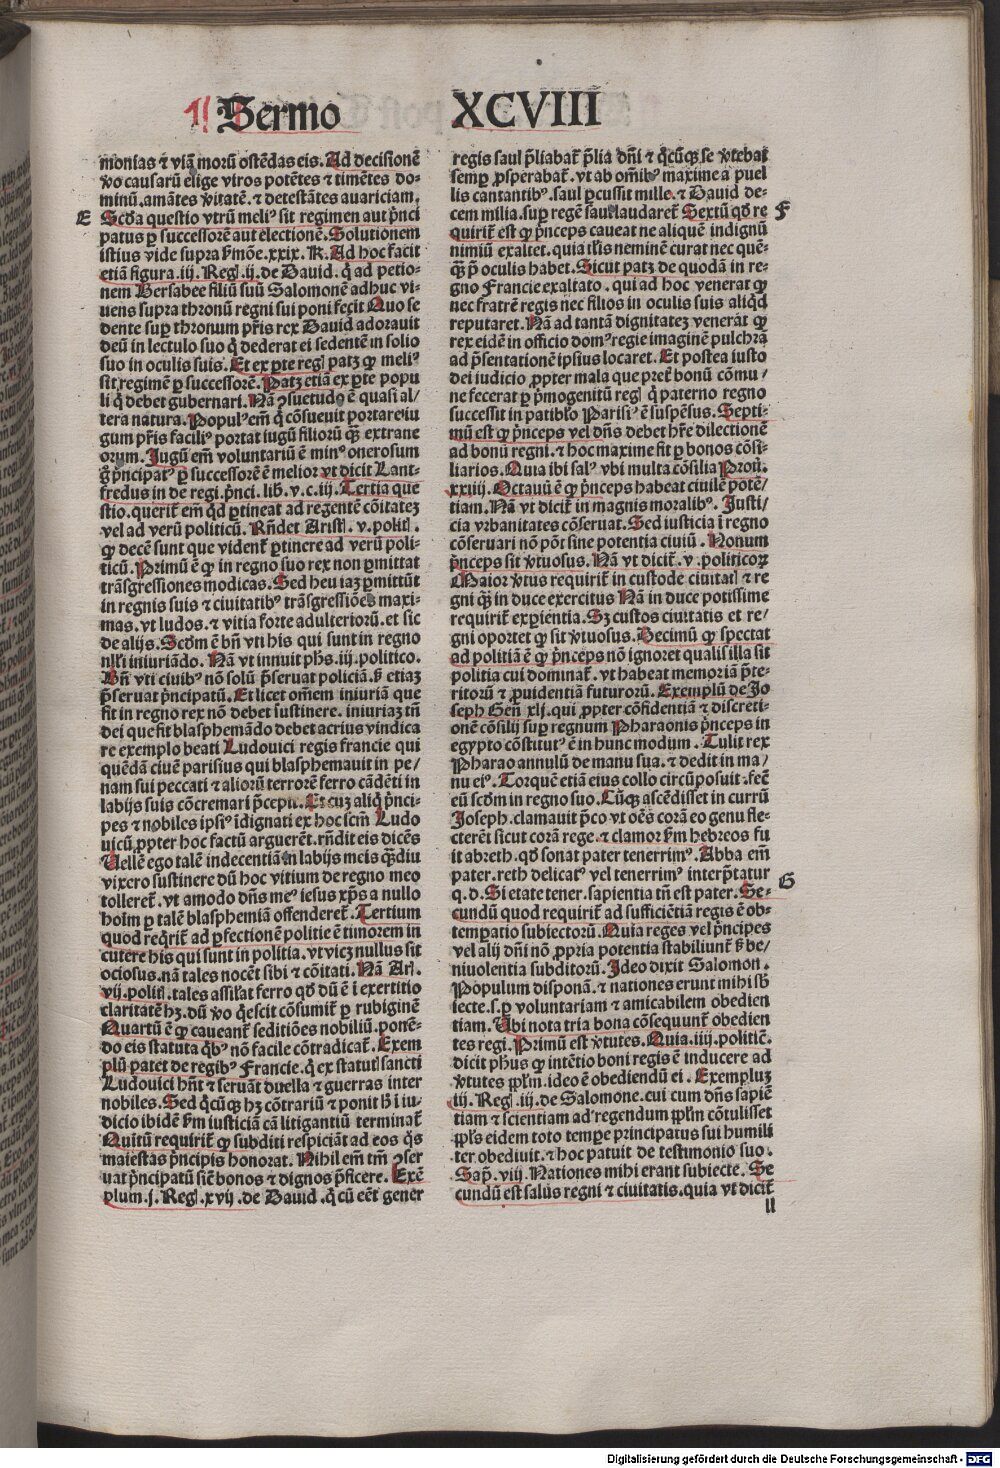 Sermo XCVIII
monias ⁊ viā morū ostēdas eis. Ad decisionē
vo causarū elige viros potētes ⁊ timētes do-
minū. amātes v̓itatē. ⁊ detestātes auariciam.
E
Scd̄a questio vtrū meliꝰ sit regimen aut pn̄ci
patus ꝑ successorē aut electionē. Solutionem
istius vide supra ẜmōe. xxix. K. Ad hoc facit
etiā figura. iij. Regꝭ. ij. de Dauid. q̇ ad petio-
nem Bersabee filiū suū Salomonē adhuc vi-
uens supra thronū regni sui poni fecit Quo se
dente suꝑ thronum pr̄is rex Dauid adorauit
deū in lectulo suo q̇ dederat ei sedentē in solio
suo in oculis suis. Et ex ꝑte regꝭ patꝫ ꝙ meliꝰ
sit regimē ꝑ successorē. Patꝫ etiā ex ꝑte popu
li q̇ debet gubernari. Nā ꝯsuetudo ē quasi al/
tera natura. Populꝰ em̄ q̇ cōsueuit portare iu
gum pr̄is faciliꝰ portat iugū filiorū q̄ꝫ extrane
orum. Iugū em̄ voluntariū ē minꝰ onerosum
g̊ pn̄cipatꝰ ꝑ successorē ē melior vt dicit Lant-
fredus in de regi. pn̄ci. lib. v. c. iij. Tertia que
stio. querit̄ em̄ qd̄ ꝑtineat ad regentē cōitatez
vel ad verū politicū. Rn̄det Aristꝭ. v. politꝭ.
ꝙ decē sunt que vident̄ ꝑtinere ad verū poli-
ticū. Primū ē ꝙ in regno suo rex non ꝑmittat
trāsgressiones modicas. Sed heu iaꝫ ꝑmittūt
in regnis suis ⁊ ciuitatibꝰ trāsgressiōes maxi-
mas. vt ludos. ⁊ vitia forte adulteriorū. et sic
de alijs. Scd̄m ē bn̄ vti his qui sunt in regno
nll̄i iniuriādo. Nā vt innuit ph̄s. iij. politico.
Bn̄ vti ciuibꝰ nō solū p̄seruat policiā. ß etiaꝫ
p̄seruat pn̄cipatū. Et licet om̄em iniuriā que
fit in regno rex nō debet sustinere. iniuriaꝫ tn̄
dei que fit blasphemādo debet acrius vindica
re exemplo beati Ludouici regis francie qui
quēdā ciuē parisius qui blasphemauit in pe/
nam sui peccati ⁊ aliorū terrorē ferro cādēti in
labijs suis cōcremari p̄cepit. Et cuꝫ aliq̇ pn̄ci-
pes ⁊ nobiles ipsiꝰ īdignati ex hoc scm̄ Ludo
uicū ꝓpter hoc factū arguerēt. rn̄dit eis dicēs
Vellē ego talē indecentiā in labijs meis q̄ꝫdiu
vixero sustinere dū hoc vitium de regno meo
tolleret̄. vt amodo dn̄s meꝰ iesus xp̄s a nullo
hoīm ꝑ talē blasphemiā offenderet̄. Tertium
quod req̇rit̄ ad ꝑfectionē politie ē timorem in
cutere his qui sunt in politia. vt vicꝫ nullus sit
ociosus. nā tales nocēt sibi ⁊ cōitati. Nā Arꝭ.
vij. politꝭ. tales assil̄at ferro qd̄ dū ē ī exertitio
claritatē hꝫ. dū v̊o q̇escit cōsumit̄ ꝑ rubiginē
Quartū ē ꝙ caueant̄ seditiōes nobiliū. ponē-
do eis statuta q̇bꝰ nō facile cōtradicat̄. Exem
plū patet de regibꝰ Francie. q̇ ex statutꝭ sancti
Ludouici hn̄t ⁊ seruāt duella ⁊ guerras inter
nobiles. Sed q̇cūqꝫ hꝫ cōtrariū ⁊ ponit h̄ ī iu-
dicio ibidē ẜm iusticiā cā litigantiū terminat̄
Quītū requirit̄ ꝙ subditi respiciāt ad eos q̇s
maiestas pn̄cipis honorat. Nihil em̄ tm̄ ꝯser
uat pn̄cipatū sic̄ bonos ⁊ dignos p̄ficere. Exē
plum. j. Regꝭ. xvij. de Dauid. q̇ cū eēt gener
regis saul p̄liabat̄ p̄lia dn̄i ⁊ q̇cūqꝫ se v̓tebat
semꝑ ꝓsperabat̄. vt ab om̄ibꝰ maxime a puel
lis cantantibꝰ. saul ꝑcussit mille. ⁊ Dauid de-
cem milia. suꝑ regē saul laudaret̄. Sextū qd̄ re
F
quirit̄ est ꝙ pn̄ceps caueat ne aliquē indignū
nimiū exaltet. quia tl̄is neminē curat nec quē-
q̄ꝫ p̄ oculis habet. Sicut patꝫ de quodā in re-
gno Francie exaltato. qui ad hoc venerat ꝙ
nec fratrē regis nec filios in oculis suis aliq̇d
reputaret. Nā ad tantā dignitateꝫ venerāt ꝙ
rex eidē in officio domꝰ regie imaginē pulchrā
ad p̄sentationē ipsius locaret. Et postea iusto
dei iudicio ꝓpter mala que preƭ bonū cōmu/
ne fecerat ꝑ p̄mogenitū regꝭ q̇ paterno regno
successit in patibl̊o Parisiꝰ ē suspēsus. Septi-
mū est ꝙ pn̄ceps vel dn̄s debet hr̄e dilectionē
ad bonū regni. ⁊ hoc maxime fit ꝑ bonos cōsi-
liarios. Quia ibi salꝰ vbi multa cōsilia Prou̇.
xxiiij. Octauū ē ꝙ pn̄ceps habeat ciuilē potē/
tiam. Nā vt dicit̄ in magnis moralibꝰ. Iusti/
cia vrbanitates cōseruat. Sed iusticia ī regno
cōseruari nō pōt sine potentia ciuiū. Nonum
pn̄ceps sit v̓tuosus. Nā vt dicit̄. v. politicoꝝ
Maior v̓tus requirit̄ in custode ciuitatꝭ ⁊ re
gni q̄ꝫ in duce exercitus Nā in duce potissime
requirit̄ exꝑientia. Sꝫ custos ciuitatis et re/
gni oportet ꝙ sit v̓tuosus. Decimū ꝙ spectat
ad politiā ē ꝙ pn̄ceps nō ignoret qualis illa sit
politia cui dominat̄. vt habeat memoriā p̄te-
ritorū ⁊ ꝓuidentiā futurorū. Exemplū de Io
seph Gen̄ xlj. qui ꝓpter cōfidentiā ⁊ discreti-
onē cōsilij suꝑ regnum Pharaonis pn̄ceps in
egypto cōstitutꝰ ē in hunc modum. Tulit rex
Pharao annulū de manu sua. ⁊ dedit in ma/
nu eiꝰ. Torquē etiā eius collo circūposuit. fec̄
eū scd̄m in regno suo. Cūqꝫ ascēdisset in currū
Ioseph. clamauit p̄co vt oēs corā eo genu fle-
cterēt sicut corā rege. ⁊ clamor ẜm hebreos fu
it abreth. qd̄ sonat pater tenerrimꝰ. Abba em̄
pater. reth delicatꝰ vel tenerrimꝰ interp̄tatur
G
q. d. Si etate tener. sapientia tn̄ est pater. Se-
cundū quod requirit̄ ad sufficiētiā regis ē ob-
temꝑatio subiectorū. Quia reges vel pn̄cipes
vel alij dn̄i nō ꝓpria potentia stabiliunt̄ ß be/
niuolentia subditorū. Ideo dixit Salomon.
Populum disponā. ⁊ nationes erunt mihi sb̄
iecte. s. ꝑ voluntariam ⁊ amicabilem obedien
tiam. Vbi nota tria bona cōsequunt̄ obedien
tes regi. Primū est v̓tutes. Quia. iiij. politic̄.
dicit ph̄us ꝙ intētio boni regis ē inducere ad
v̓tutes ppl̄m. ideo ē obediendū ei. Exempluꝫ
iij. Regꝭ. iij. de Salomone. cui cum dn̄s sapiē
tiam ⁊ scientiam ad regendum ppl̄m cōtulisset
ppl̄s eidem toto temꝑe principatus sui humili
ter obediuit. ⁊ hoc patuit de testimonio suo.
Sap̄. viij. Nationes mihi erant subiecte. Se
cundū est salus regni ⁊ ciuitatis. quia vt dicit̄
ll
Digitalisierung gefördert durch die Deutsche Forschungsgemeinschaft - DFG